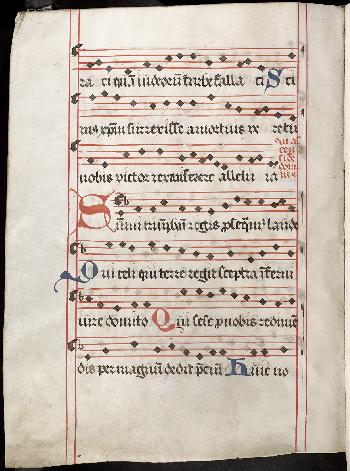 ra ci quā iudeorū turbe falla ci S ci
mus xp̄m surrexisse a mortuis ve re tu
nobis victor rex miserere allelu ia
Summi triumphū regis ꝓseqm̄r laude
Qui celi qui terre regit sceptra īferni
iure domito Qui sese ꝓ nobis redimē
dis per magnū dedit p̄ciū Hūc no